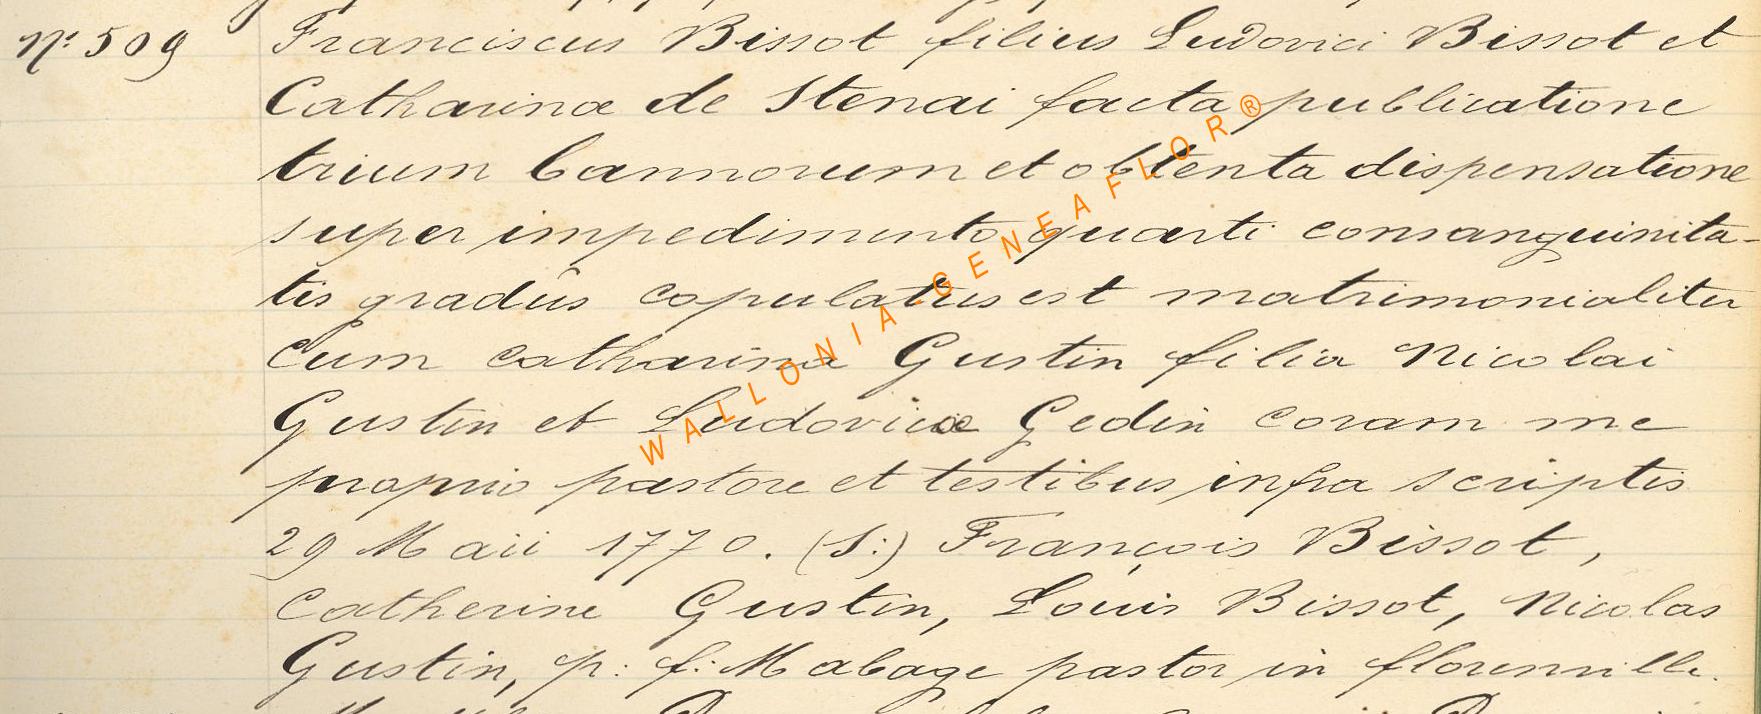 N.º 509
Franciscus Bissot filius Ludovici Bissot et
Catharinæ de Stenai facta publicatione
trium bannorum et obtenta dispensatione
super impedimento quarti consanguinita-
tis gradûs copulatus est matrimonialiter
cum catharina Gustin filia Nicolai
Gustin et Ludovicæ Gedin coram me
proprio pastore et testibus infra scriptis
29 Maii 1770. (S:) François Bissot,
Catherine Gustin, Louis Bissot, Nicolas
Gustin, p: f: Mabage pastor in florenville.
WALLONIA GENEAFLOR®